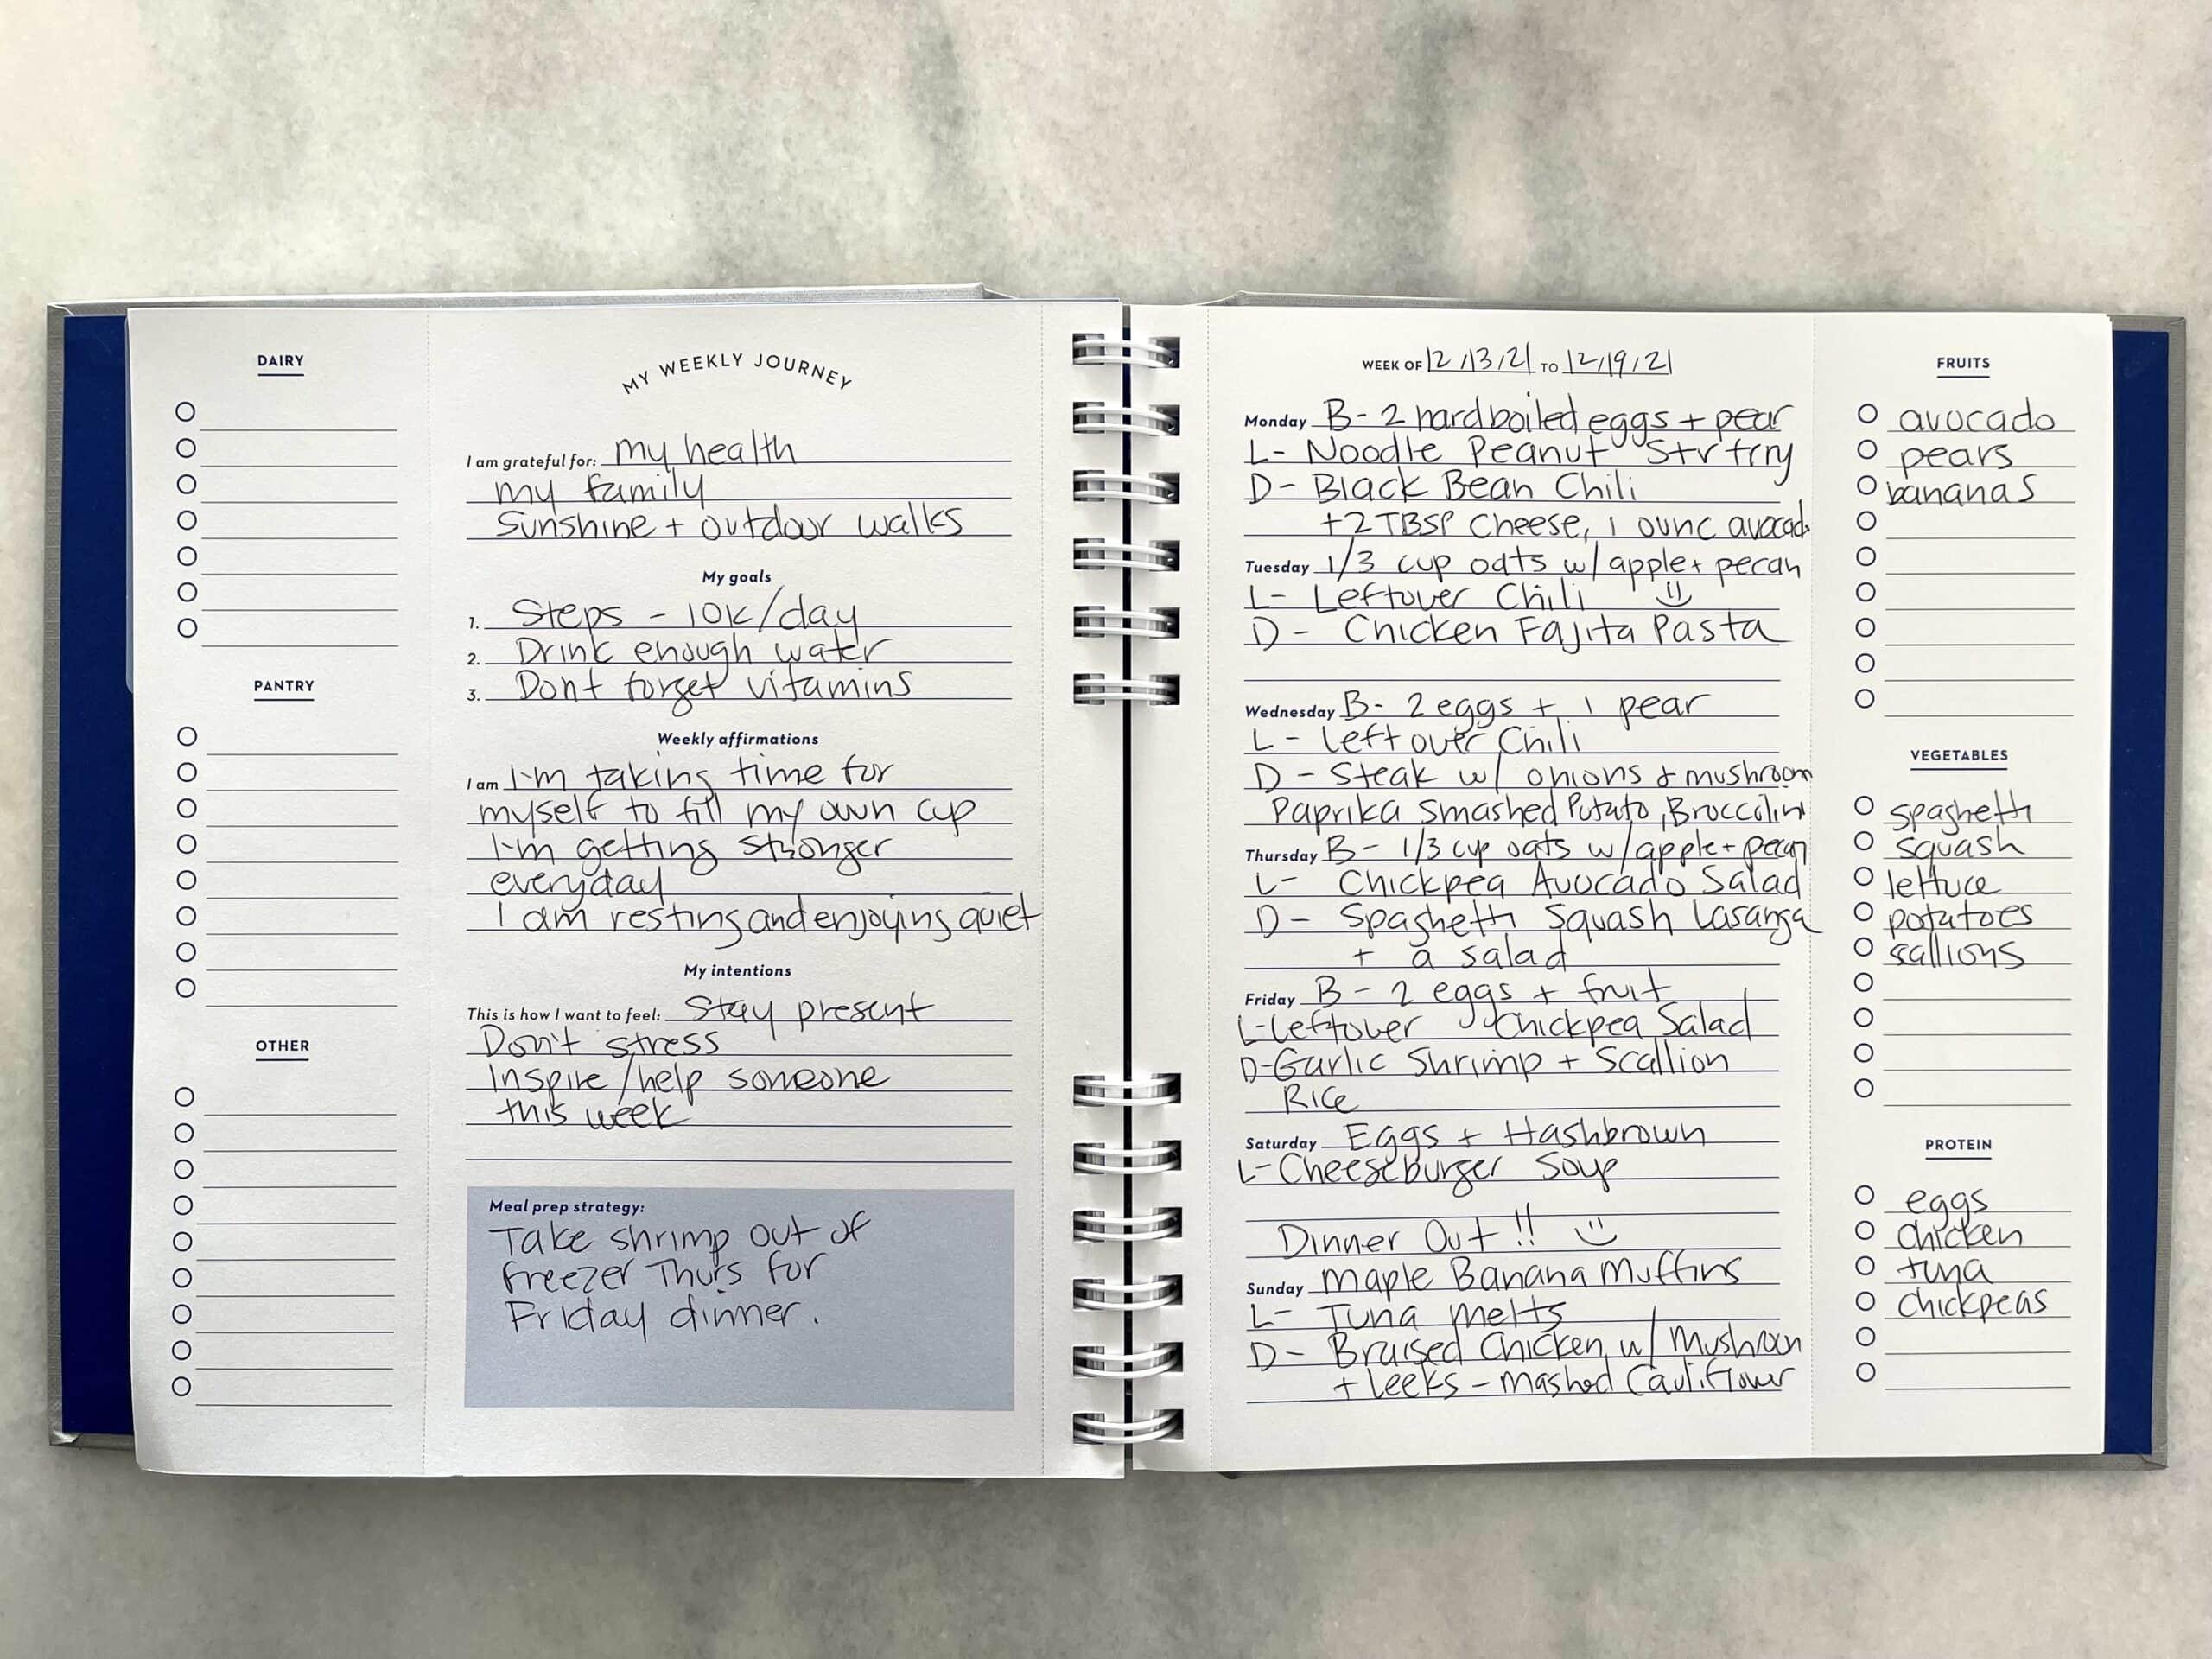 DAIRY
PANTRY
OTHER
MY WEEKLY JOURNEY
I am grateful for: my health
my family
Sunshine + outdoor walks
My goals
1. Steps - 10k/day
2. Drink enough water
3. Dont forget vitamins
Weekly affirmations
I am I'm taking time for
myself to fill my own cup
I'm getting stronger
everyday
I am resting and enjoying quiet
My intentions
This is how I want to feel: Stay present
Don't stress
Inspire/help someone
this week
Meal prep strategy:
Take shrimp out of
freezer Thurs for
Friday dinner.
WEEK OF 12/13/21 TO 12/19/21
Monday B- 2 hardboiled eggs + pear
L- Noodle Peanut Strfry
D- Black Bean Chili
+2 TBSP Cheese, 1 ounc avocado
Tuesday 1/3 cup oats w/apple+ pecan
L- Leftover Chili
D- Chicken Fajita Pasta
Wednesday B- 2 eggs + 1 pear
L- leftover Chili
D- Steak w/ onions & mushroom
Paprika Smashed Potato, Broccolini
Thursday B- 1/3 cup oats w/apple+pecan
L- Chickpea Avocado Salad
D- Spaghetti Squash Lasanga
+ a salad
Friday B- 2 eggs + fruit
L-Leftover Chickpea Salad
D-Garlic Shrimp + Scallion
Rice
Saturday Eggs + Hashbrown
L-Cheeseburger Soup
Dinner Out!!
Sunday Maple Banana Muffins
L- Tuna Melts
D- Braised Chicken w/ Mushroom
+ Leeks - mashed Cauliflower
FRUITS
avocado
pears
bananas
VEGETABLES
spaghetti
squash
lettuce
potatoes
sallions
PROTEIN
eggs
chicken
tuna
chickpeas